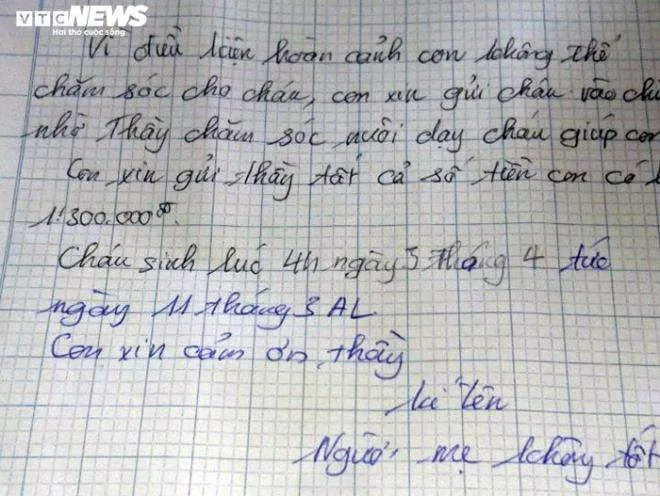 VTC NEWS
Hơi thở cuộc sống
Vì điều kiện hoàn cảnh con không thể
chăm sóc cho cháu, con xin gửi cháu vào
nhờ Thầy chăm sóc nuôi dạy cháu giúp con
Con xin gửi thầy tất cả số tiền con có
1.300.000đ.
Cháu sinh lúc 4h ngày 5 tháng 4 tức
ngày 11 tháng 3 AL
Con xin cảm ơn thầy
kí tên
Người mẹ không tốt